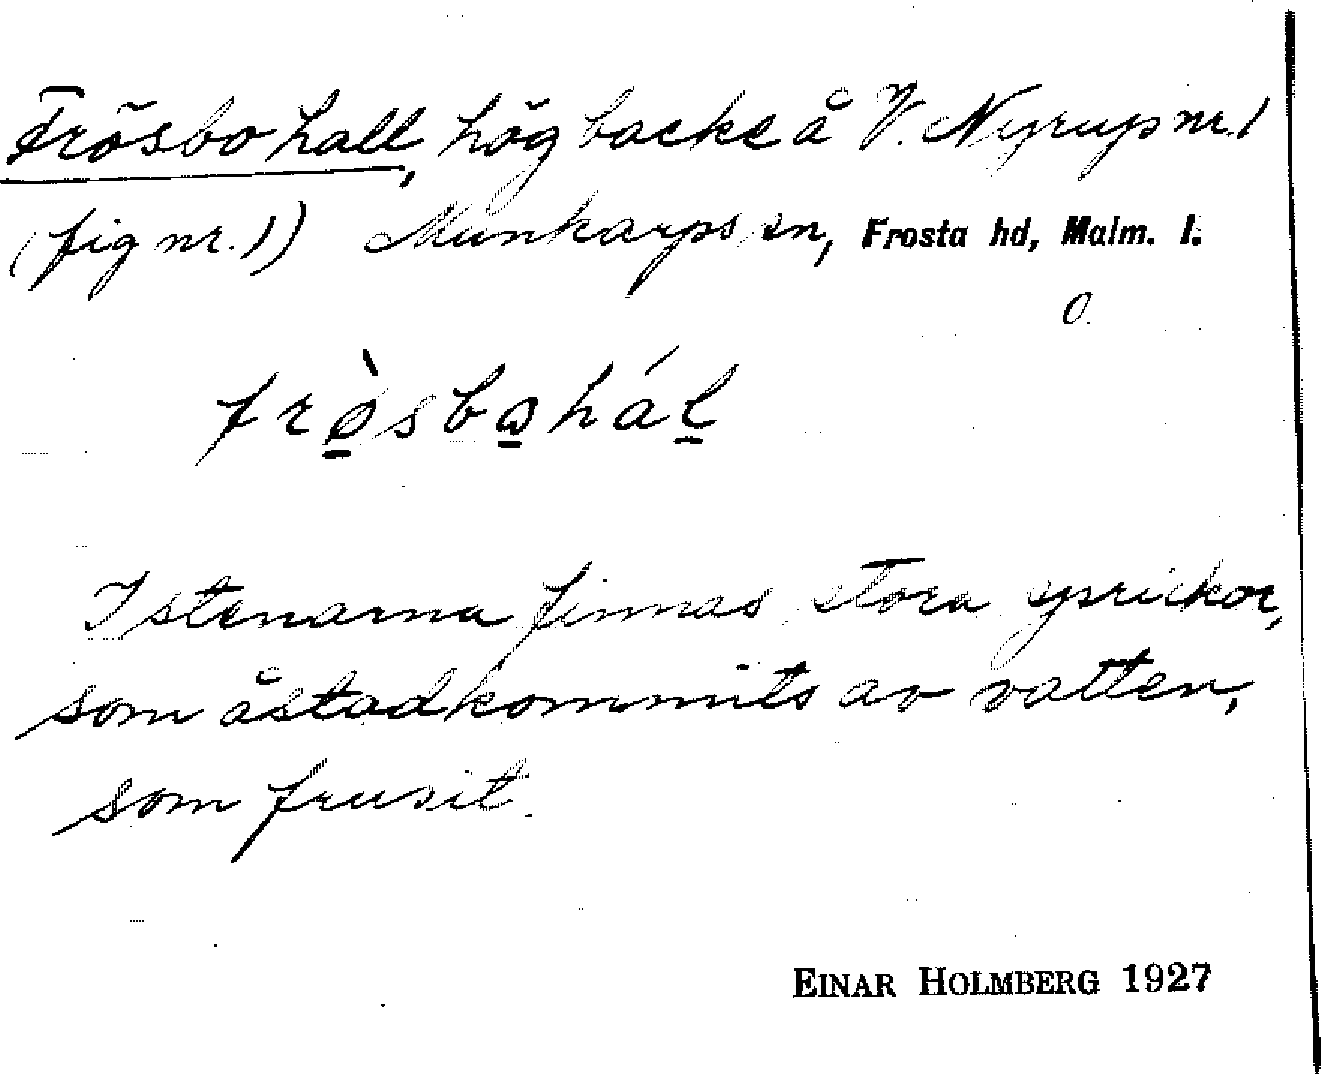 Frösbo hall, hög backe å V. Nyrup nr. 1
(fig nr. 1) Munkarps sn, Frosta hd, Malm. l.
O.
frø̀sbahál
I stenarna finnas stora sprickor,
som åstadkommits av vatten,
som frusit.
EINAR HOLMBERG 1927